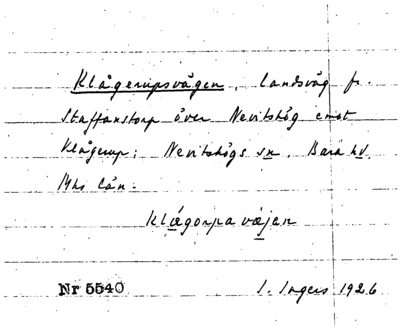 Klågerupsvägen, Landsväg fr.
Staffanstorp över Nevitshög emot
Klågerup; Nevitshögs sn, Bara hd.
Mhs län.
Klågorpavæjen
Nr 5540 I. Ingers 1926